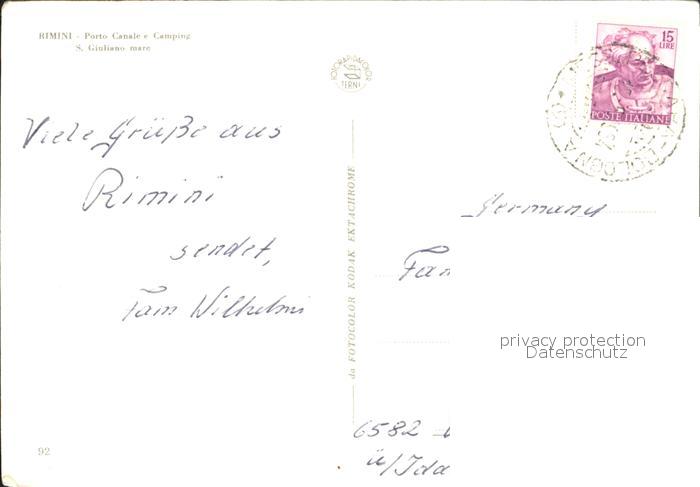 RIMINI - Porto Canale e Camping
S. Giuliano mare
FOTORAPIDACOLOR
TERNI
15
LIRE
POSTE ITALIANE
BOLOGNA
Viele Grüße aus
Rimini
sendet,
Fam Wilhelmi
da FOTOCOLOR KODAK EKTACHROME
Germany
Fam
privacy protection
Datenschutz
6582
ü/Ida
92